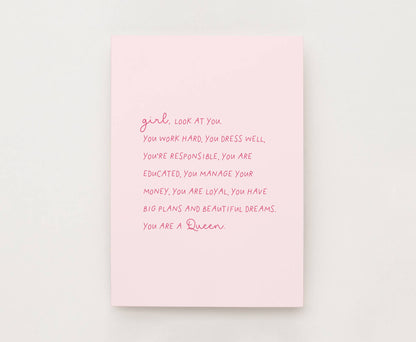 girl, LOOK AT YOU.
YOU WORK HARD, YOU DRESS WELL,
YOU'RE RESPONSIBLE, YOU ARE
EDUCATED, YOU MANAGE YOUR
MONEY, YOU ARE LOYAL, YOU HAVE
BIG PLANS AND BEAUTIFUL DREAMS.
YOU ARE A Queen.